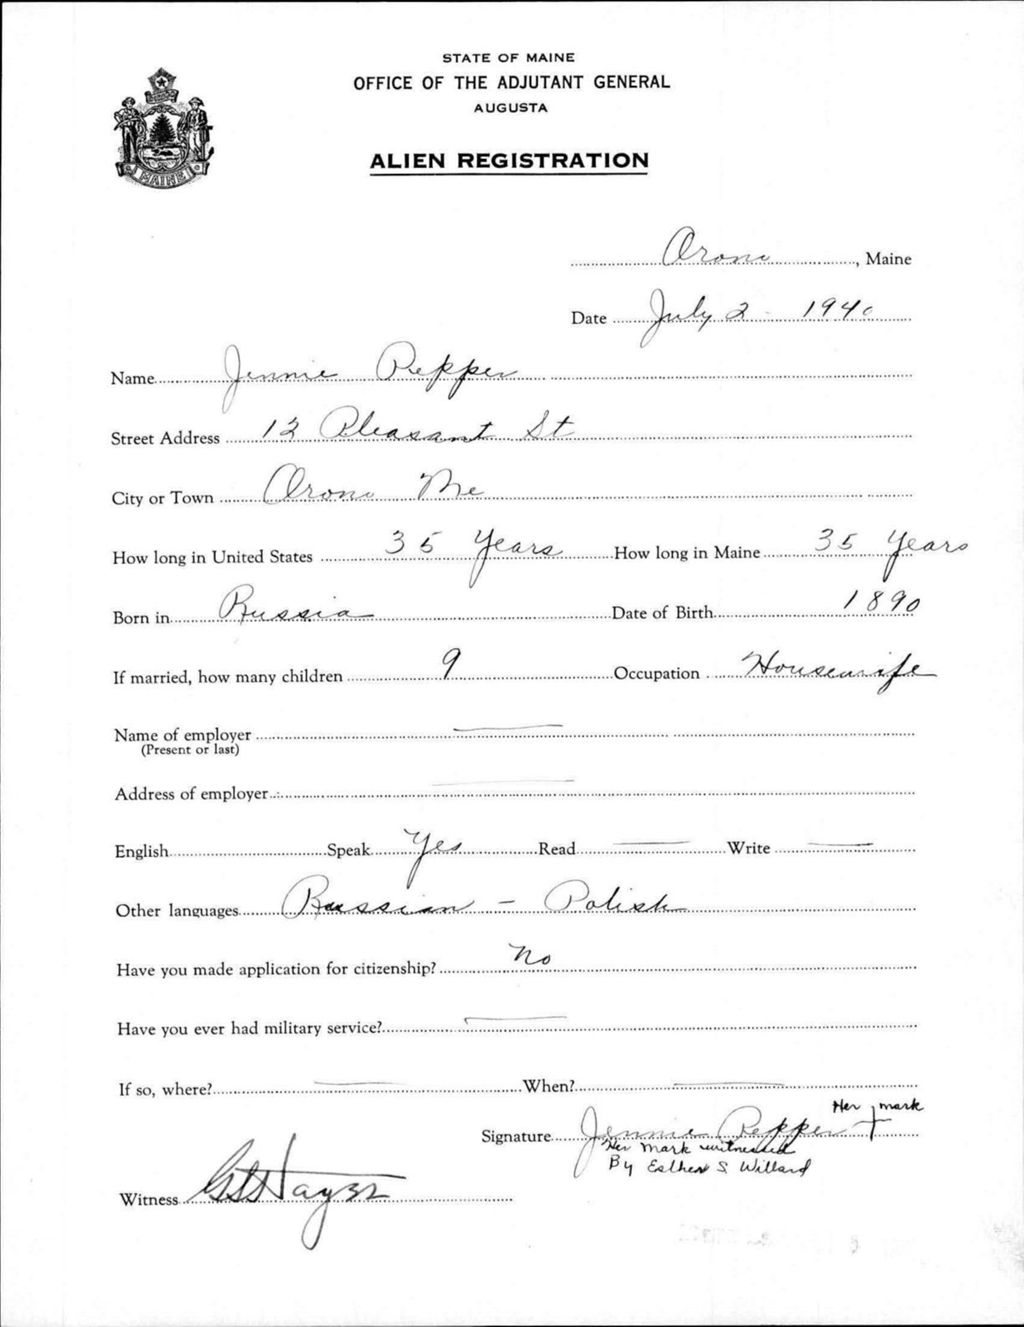 STATE OF MAINE
OFFICE OF THE ADJUTANT GENERAL
AUGUSTA
MAINE
ALIEN REGISTRATION
Orono, Maine
Date July 2 - 1940
Name Jennie Pepper
Street Address 12 Pleasant St
City or Town Orono Me
How long in United States 35 Years How long in Maine 35 Years
Born in Russia Date of Birth 1890
If married, how many children 9 Occupation Housewife
Name of employer
(Present or last)
Address of employer
English Speak Yes Read Write
Other languages Russian - Polish
Have you made application for citizenship? No
Have you ever had military service?
If so, where? When?
Her mark
Signature Jennie Pepper +
Her mark witnessed
By Esther S. Willard
Witness